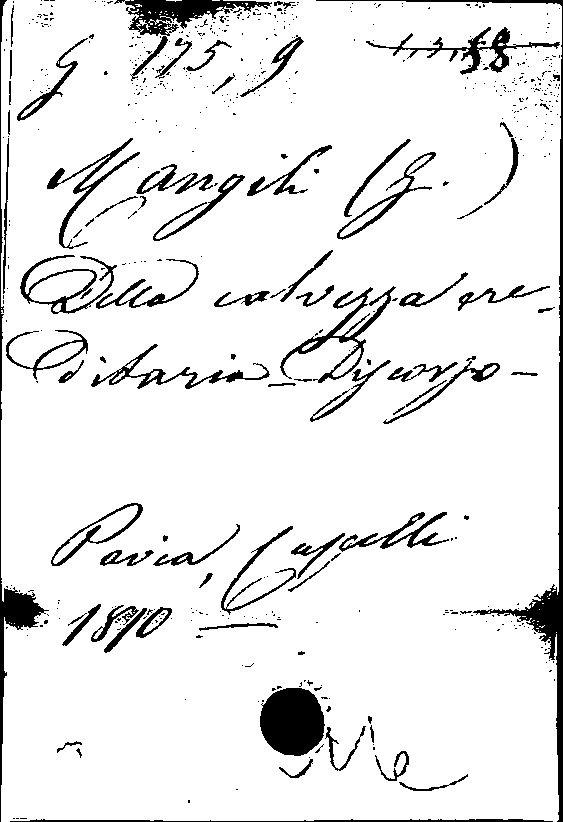 G. 175, 9
Mangili (G.)
Della calvezza ere-
ditaria - Discorso -
Pavia, Capelli
1810